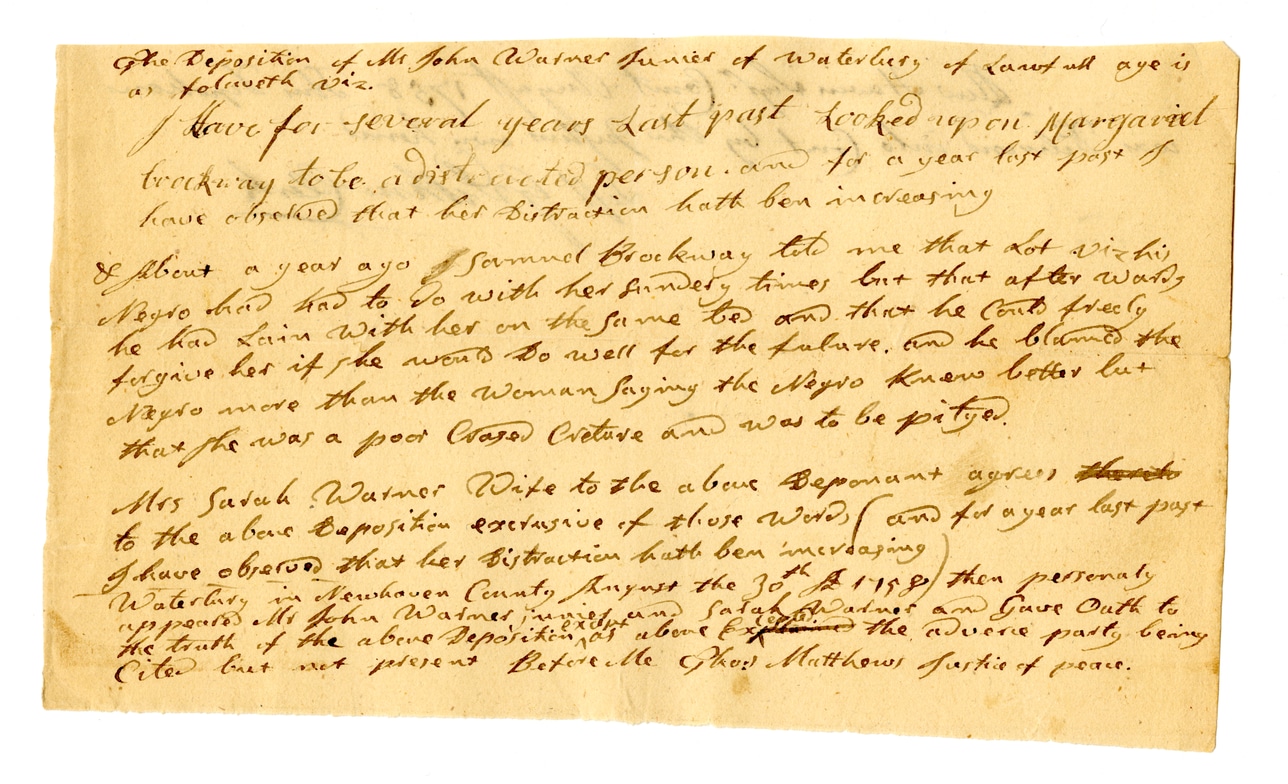 The Deposition of Mr John Warner Junier of Waterbury of Lawfull age is
as foloweth viz.
I Have for several years Last past Looked upon Margariel
brockway to be a distracted person. and for a year last past I
have observed that her Distraction hath ben increasing
& About a year ago Samuel Brockway told me that Lot viz his
Negro had had to do with her sundery times but that after wards
he had Lain with her on the same bed and that he Could freely
forgive her if she would Do well for the future. and he blamed the
Negro more than the woman saying the Negro Knew better but
that she was a poor Crased Creture and was to be pityed.
Mrs Sarah Warner Wife to the above Deponant agrees thereto
to the above Deposition exclusive of those words (and for a year last past
I have observed that her Distraction hath ben increasing)
Waterbury in Newhaven County August the 30th AD 1758 then personaly
appeared Mr John Warner junier and Sarah Warner and Gave Oath to
the truth of the above Deposition except as above Explained excepted the adverse party being
Cited but not present Before Me Thos Matthews Justice of peace.